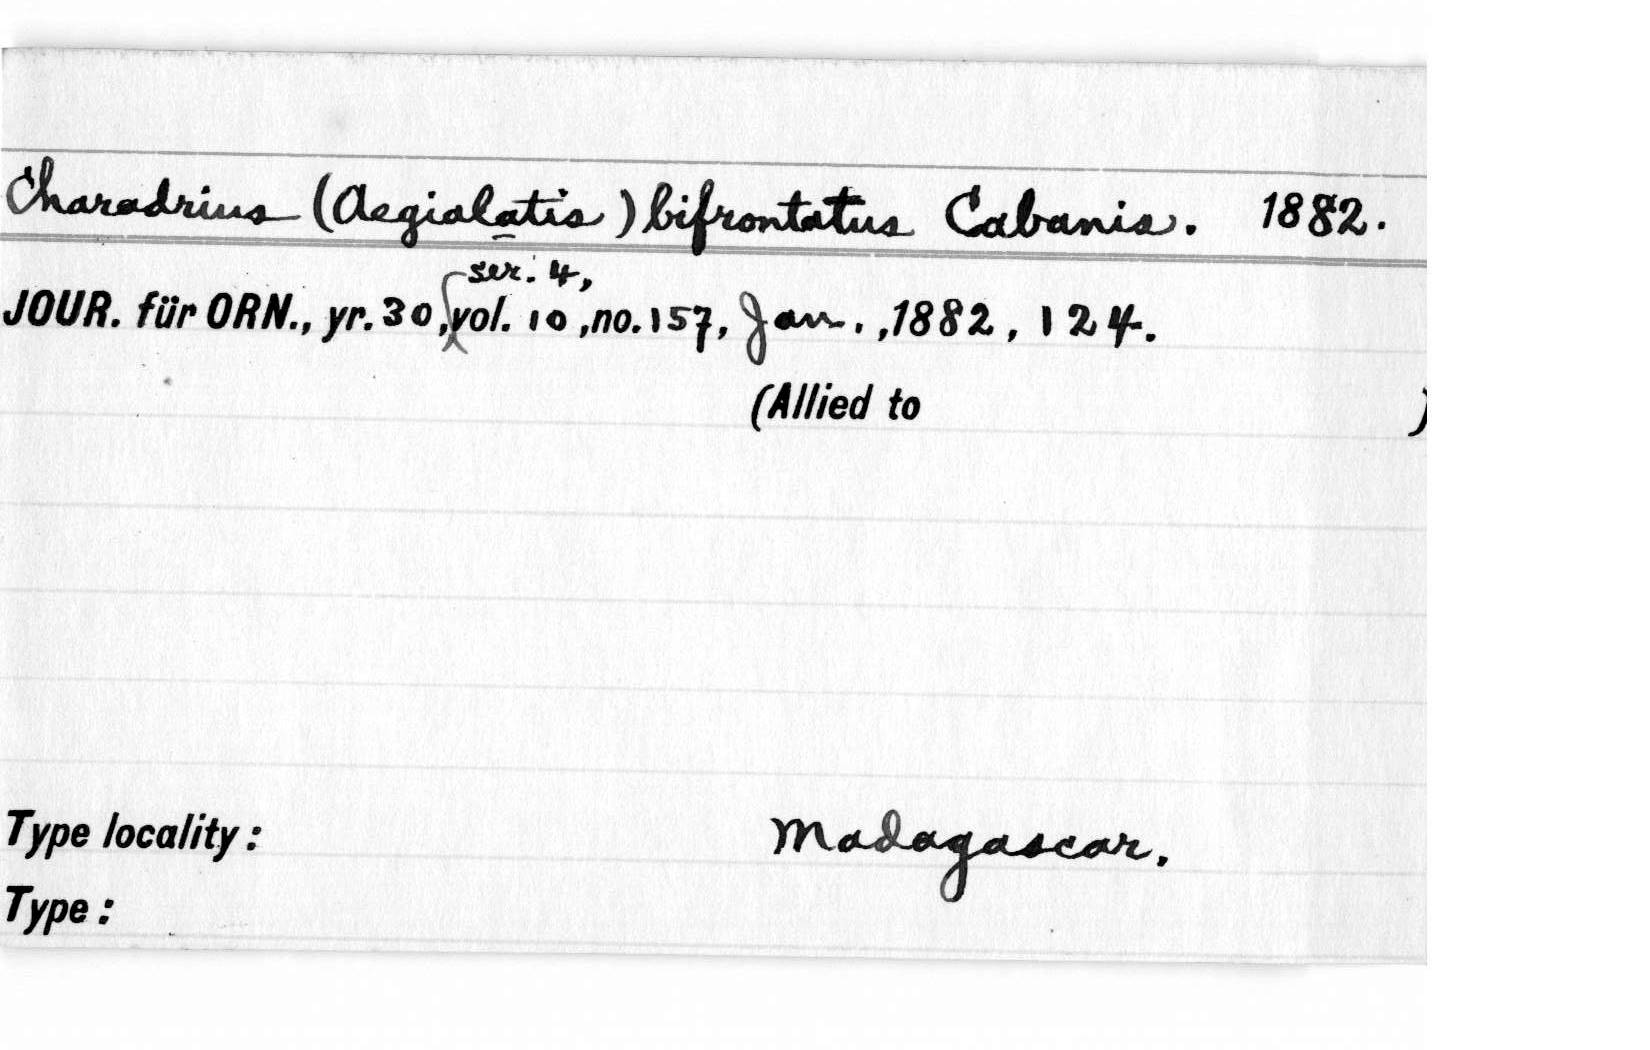 Charadrius (Aegialatis) bifrontatus Cabanis. 1882.
ser. 4,
JOUR. für ORN., yr. 30, vol. 10, no. 157, Jan., 1882, 124.
(Allied to )
Type locality: Madagascar.
Type: